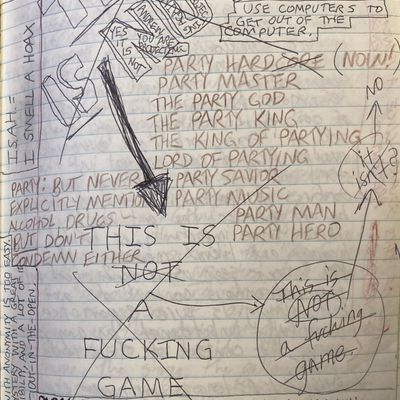 USE COMPUTERS TO
GET OUT OF THE
COMPUTER.
YES
IT
IS
NOT
YOU ARE
PROTECTING
IS
I.S.A.H. =
I SMELL A HOAX
PARTY HARDCORE (NOUN!)
PARTY MASTER
THE PARTY GOD
THE PARTY KING
THE KING OF PARTYING
LORD OF PARTYING
PARTY SAVIOR
PARTY MUSIC
PARTY MAN
PARTY HERO
PARTY: BUT NEVER
EXPLICITLY MENTION
ALCOHOL, DRUGS —
BUT DON'T
CONDEMN EITHER
THIS IS
NOT
A
FUCKING
GAME
NO
it
isn't?
This is
NOT
a fucking
game.
WITH ANONYMITY IS TOO EASY.
OUT-IN-THE-OPEN.